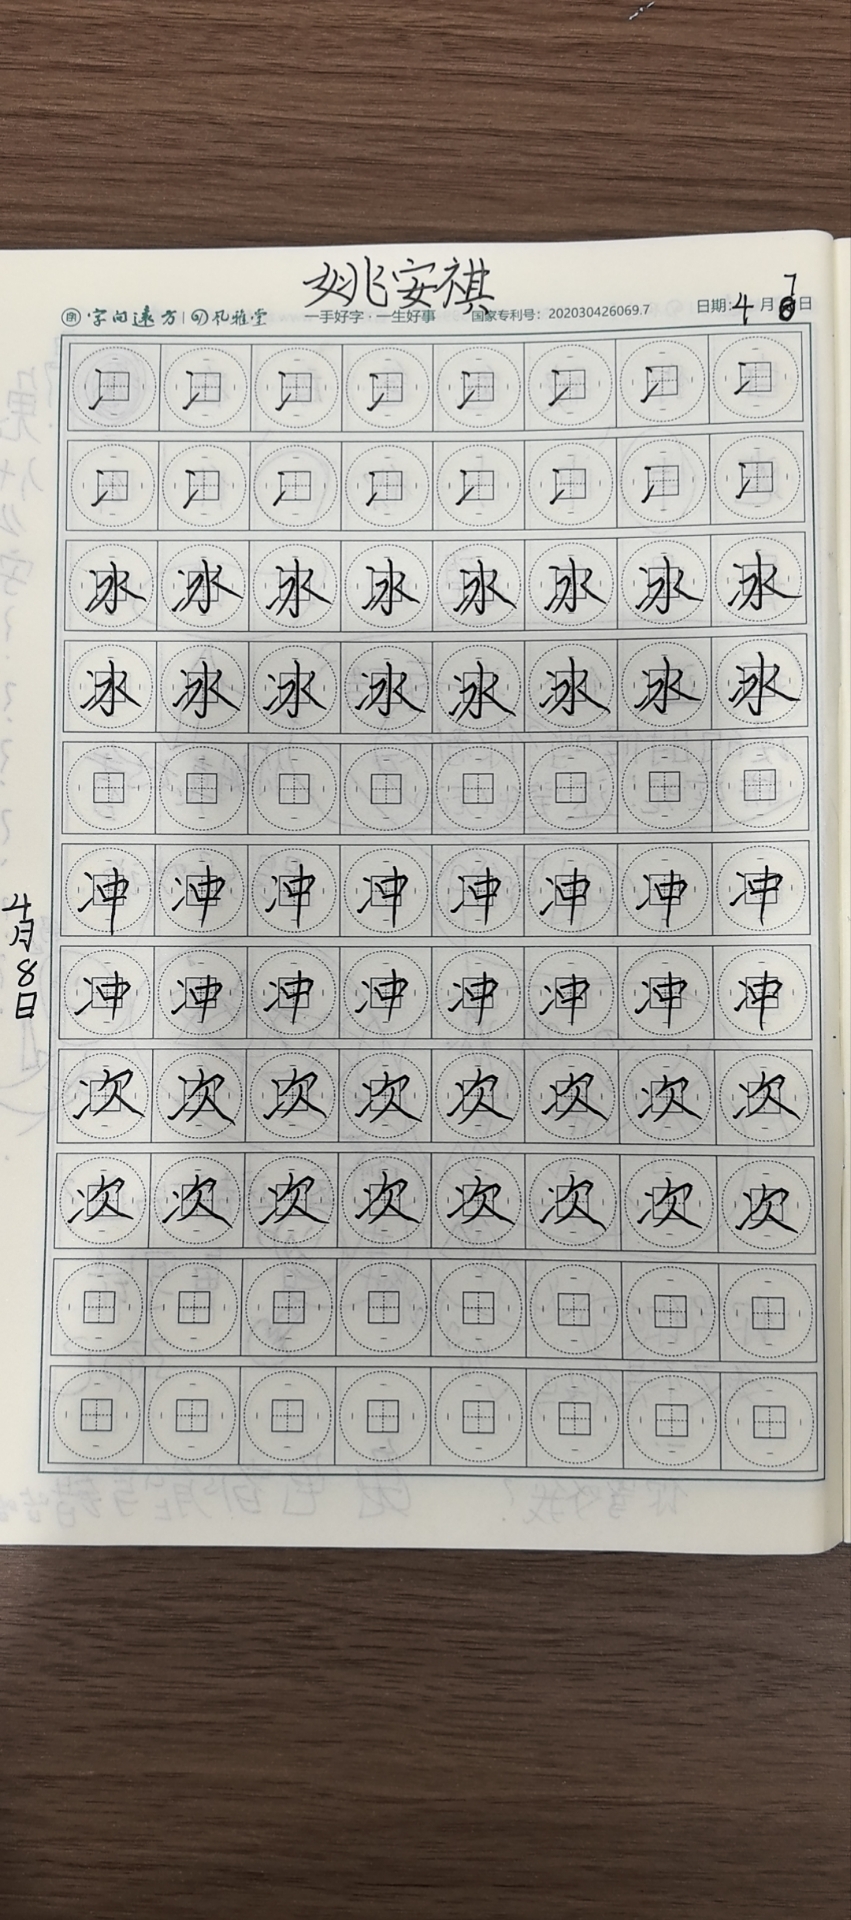 姚安祺
字向远方 孔雅堂 一手好字·一生好事 国家专利号：202030426069.7 日期：4月7日
冫冫冫冫冫冫冫冫
冫冫冫冫冫冫冫冫
冰冰冰冰冰冰冰冰
冰冰冰冰冰冰冰冰
冲冲冲冲冲冲冲冲
冲冲冲冲冲冲冲冲
次次次次次次次次
次次次次次次次次
4月8日